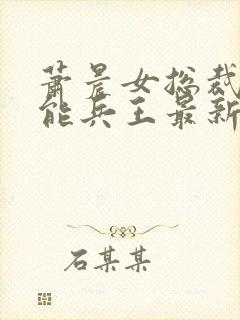 萧晨女总裁
能兵王最新
石某某